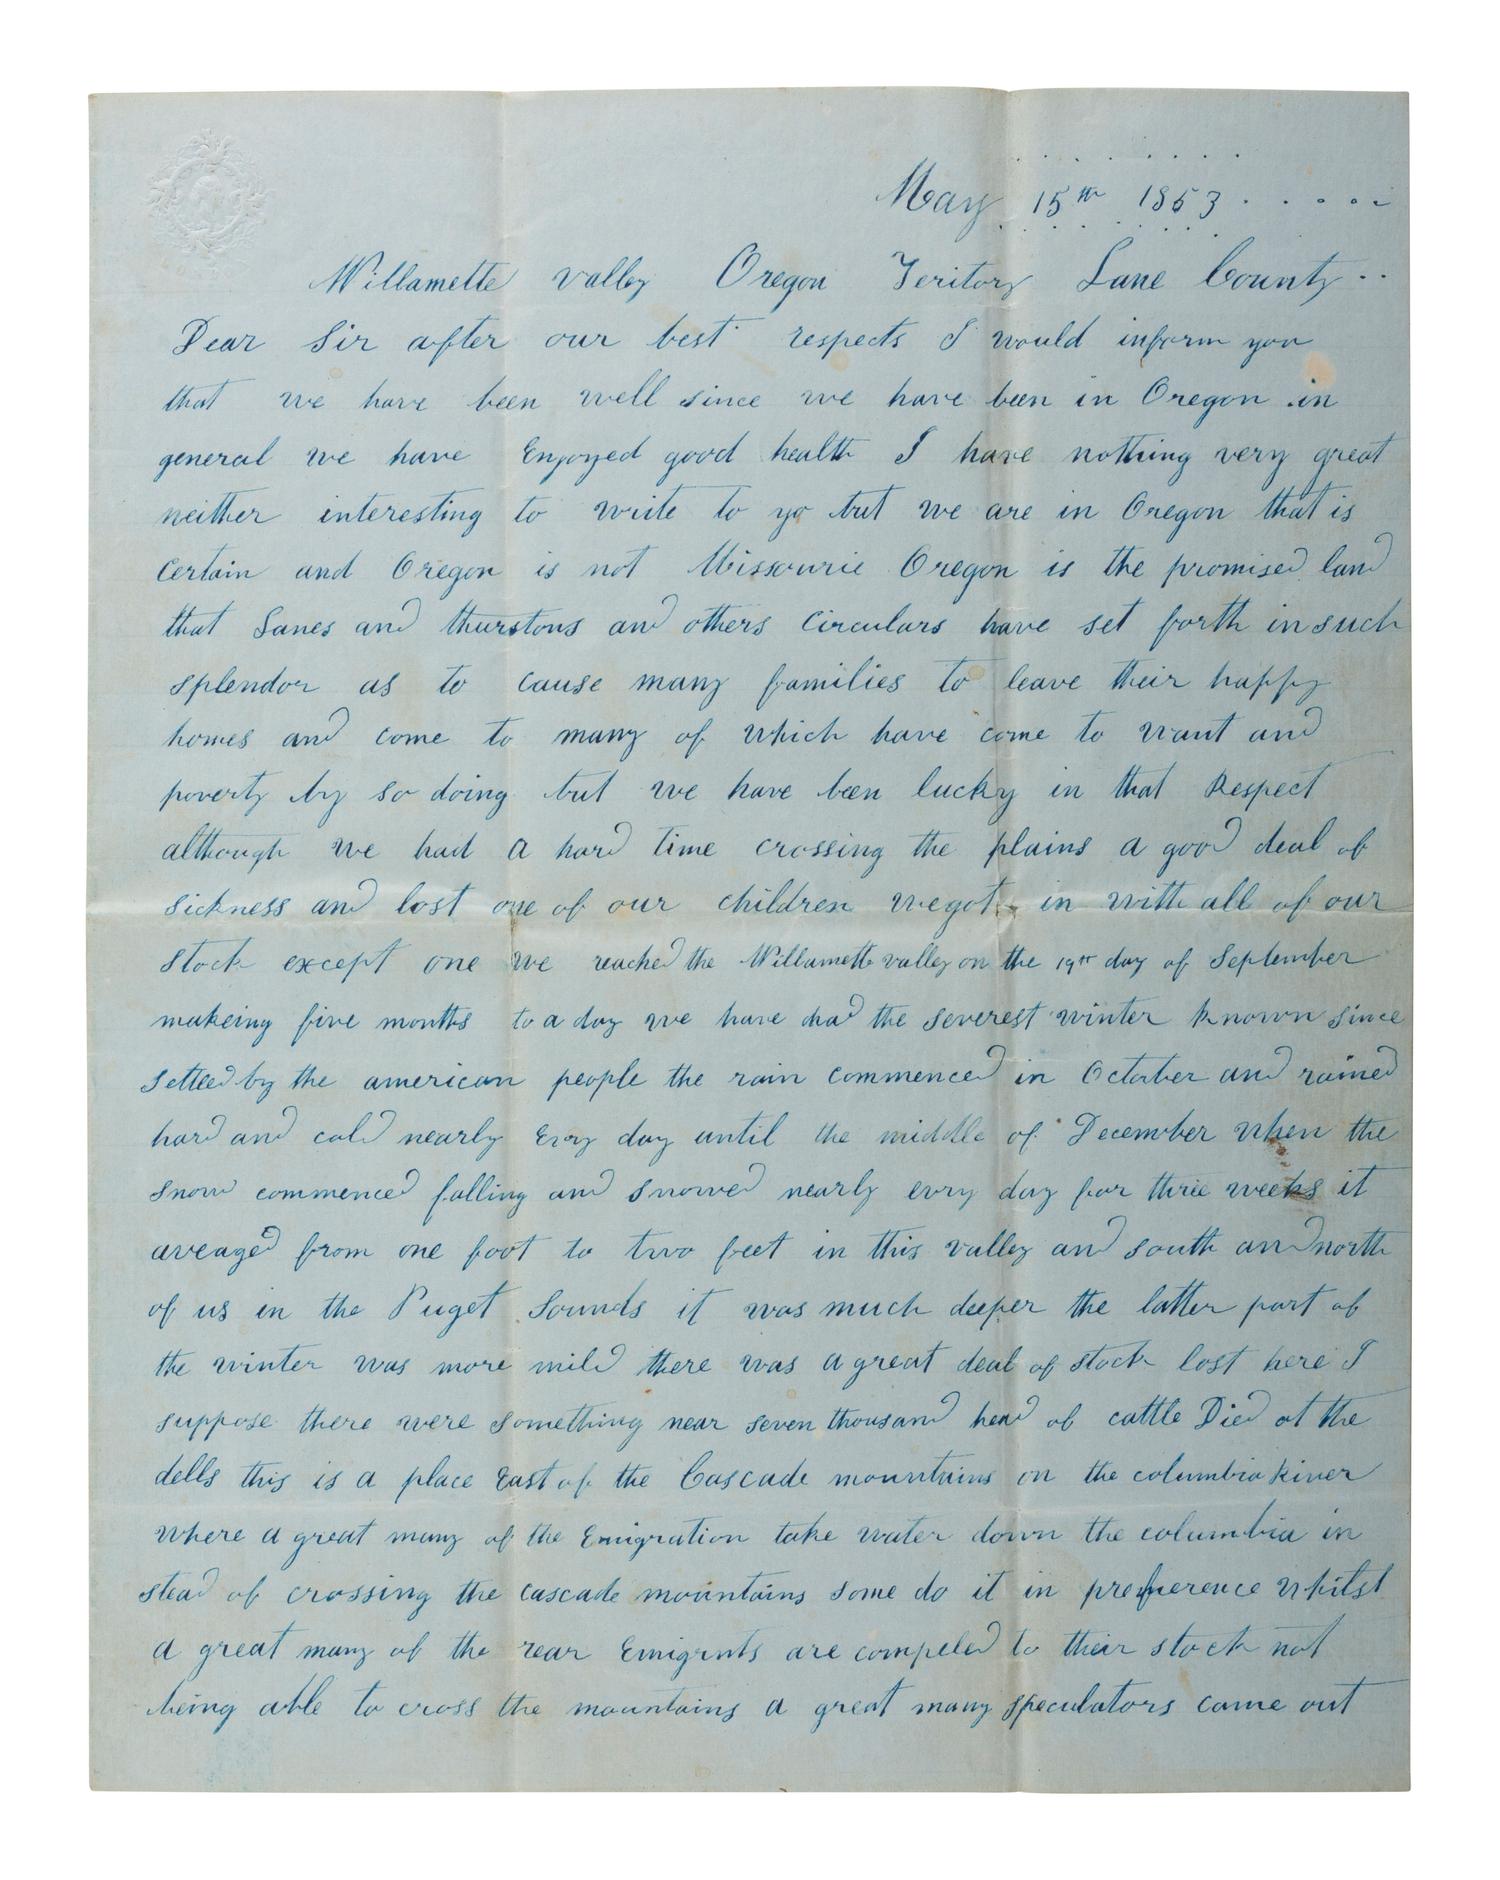 May 15th 1853
Willamette valley Oregon Teritory Lane County
Dear Sir after our best respects I would inform you
that we have been well since we have been in Oregon in
general we have Enjoyed good health I have nothing very great
neither interesting to write to yo but we are in Oregon that is
certain and Oregon is not Missourie Oregon is the promised land
that Lanes and thurstons and others circulars have set forth in such
splendor as to cause many families to leave their happy
homes and come to many of which have come to want and
poverty by so doing but we have been lucky in that Respect
although we had a hard time crossing the plains a good deal of
sickness and lost one of our children we got in with all of our
stock except one we reached the Willamette valley on the 19th day of September
makeing five months to a day we have had the severest winter known since
settled by the american people the rain commenced in October and rained
hard and cold nearly Evry day until the middle of December when the
snow commenced falling and snowed nearly evry day for three weeks it
aveaged from one foot to two feet in this valley and south and north
of us in the Puget Sounds it was much deeper the latter part of
the winter was more mild there was a great deal of stock lost here I
suppose there were something near seven thousand head of cattle Died at the
dells this is a place East of the Cascade mountains on the columbia River
where a great many of the Emigration take water down the columbia in
stead of crossing the cascade mountains some do it in preference whilst
a great many of the rear Emigrnts are compeled to their stock not
being able to cross the mountains a great many speculators came out